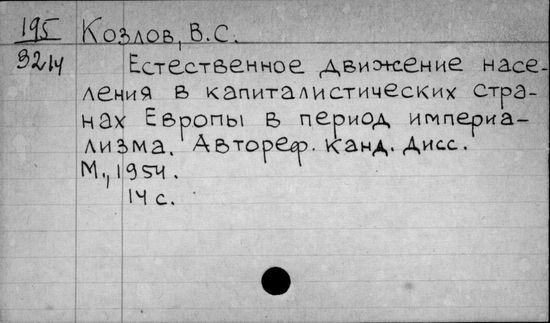 195 Козлов, В.С.
3214 Естественное движение насе-
ления в капиталистических стра-
нах Европы в период империа-
лизма. Автореф. канд. дисс.
М., 1954.
14 с.